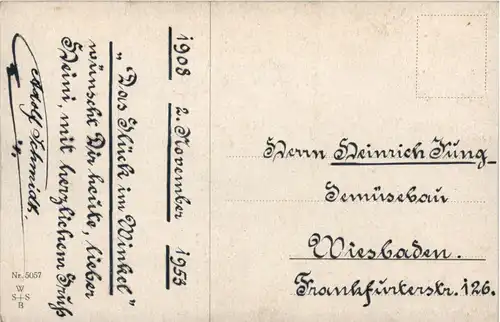 1908  2. November  1953
„Das Glück im Winkel“
wünscht Dir heute, lieber
Heini, mit herzlichem Gruß
Adolf Schmidt.
Nr. 5057
W
S+S
B
Herrn Heinrich Jung
Gemüsebau
Wiesbaden.
Frankfurterstr. 126.